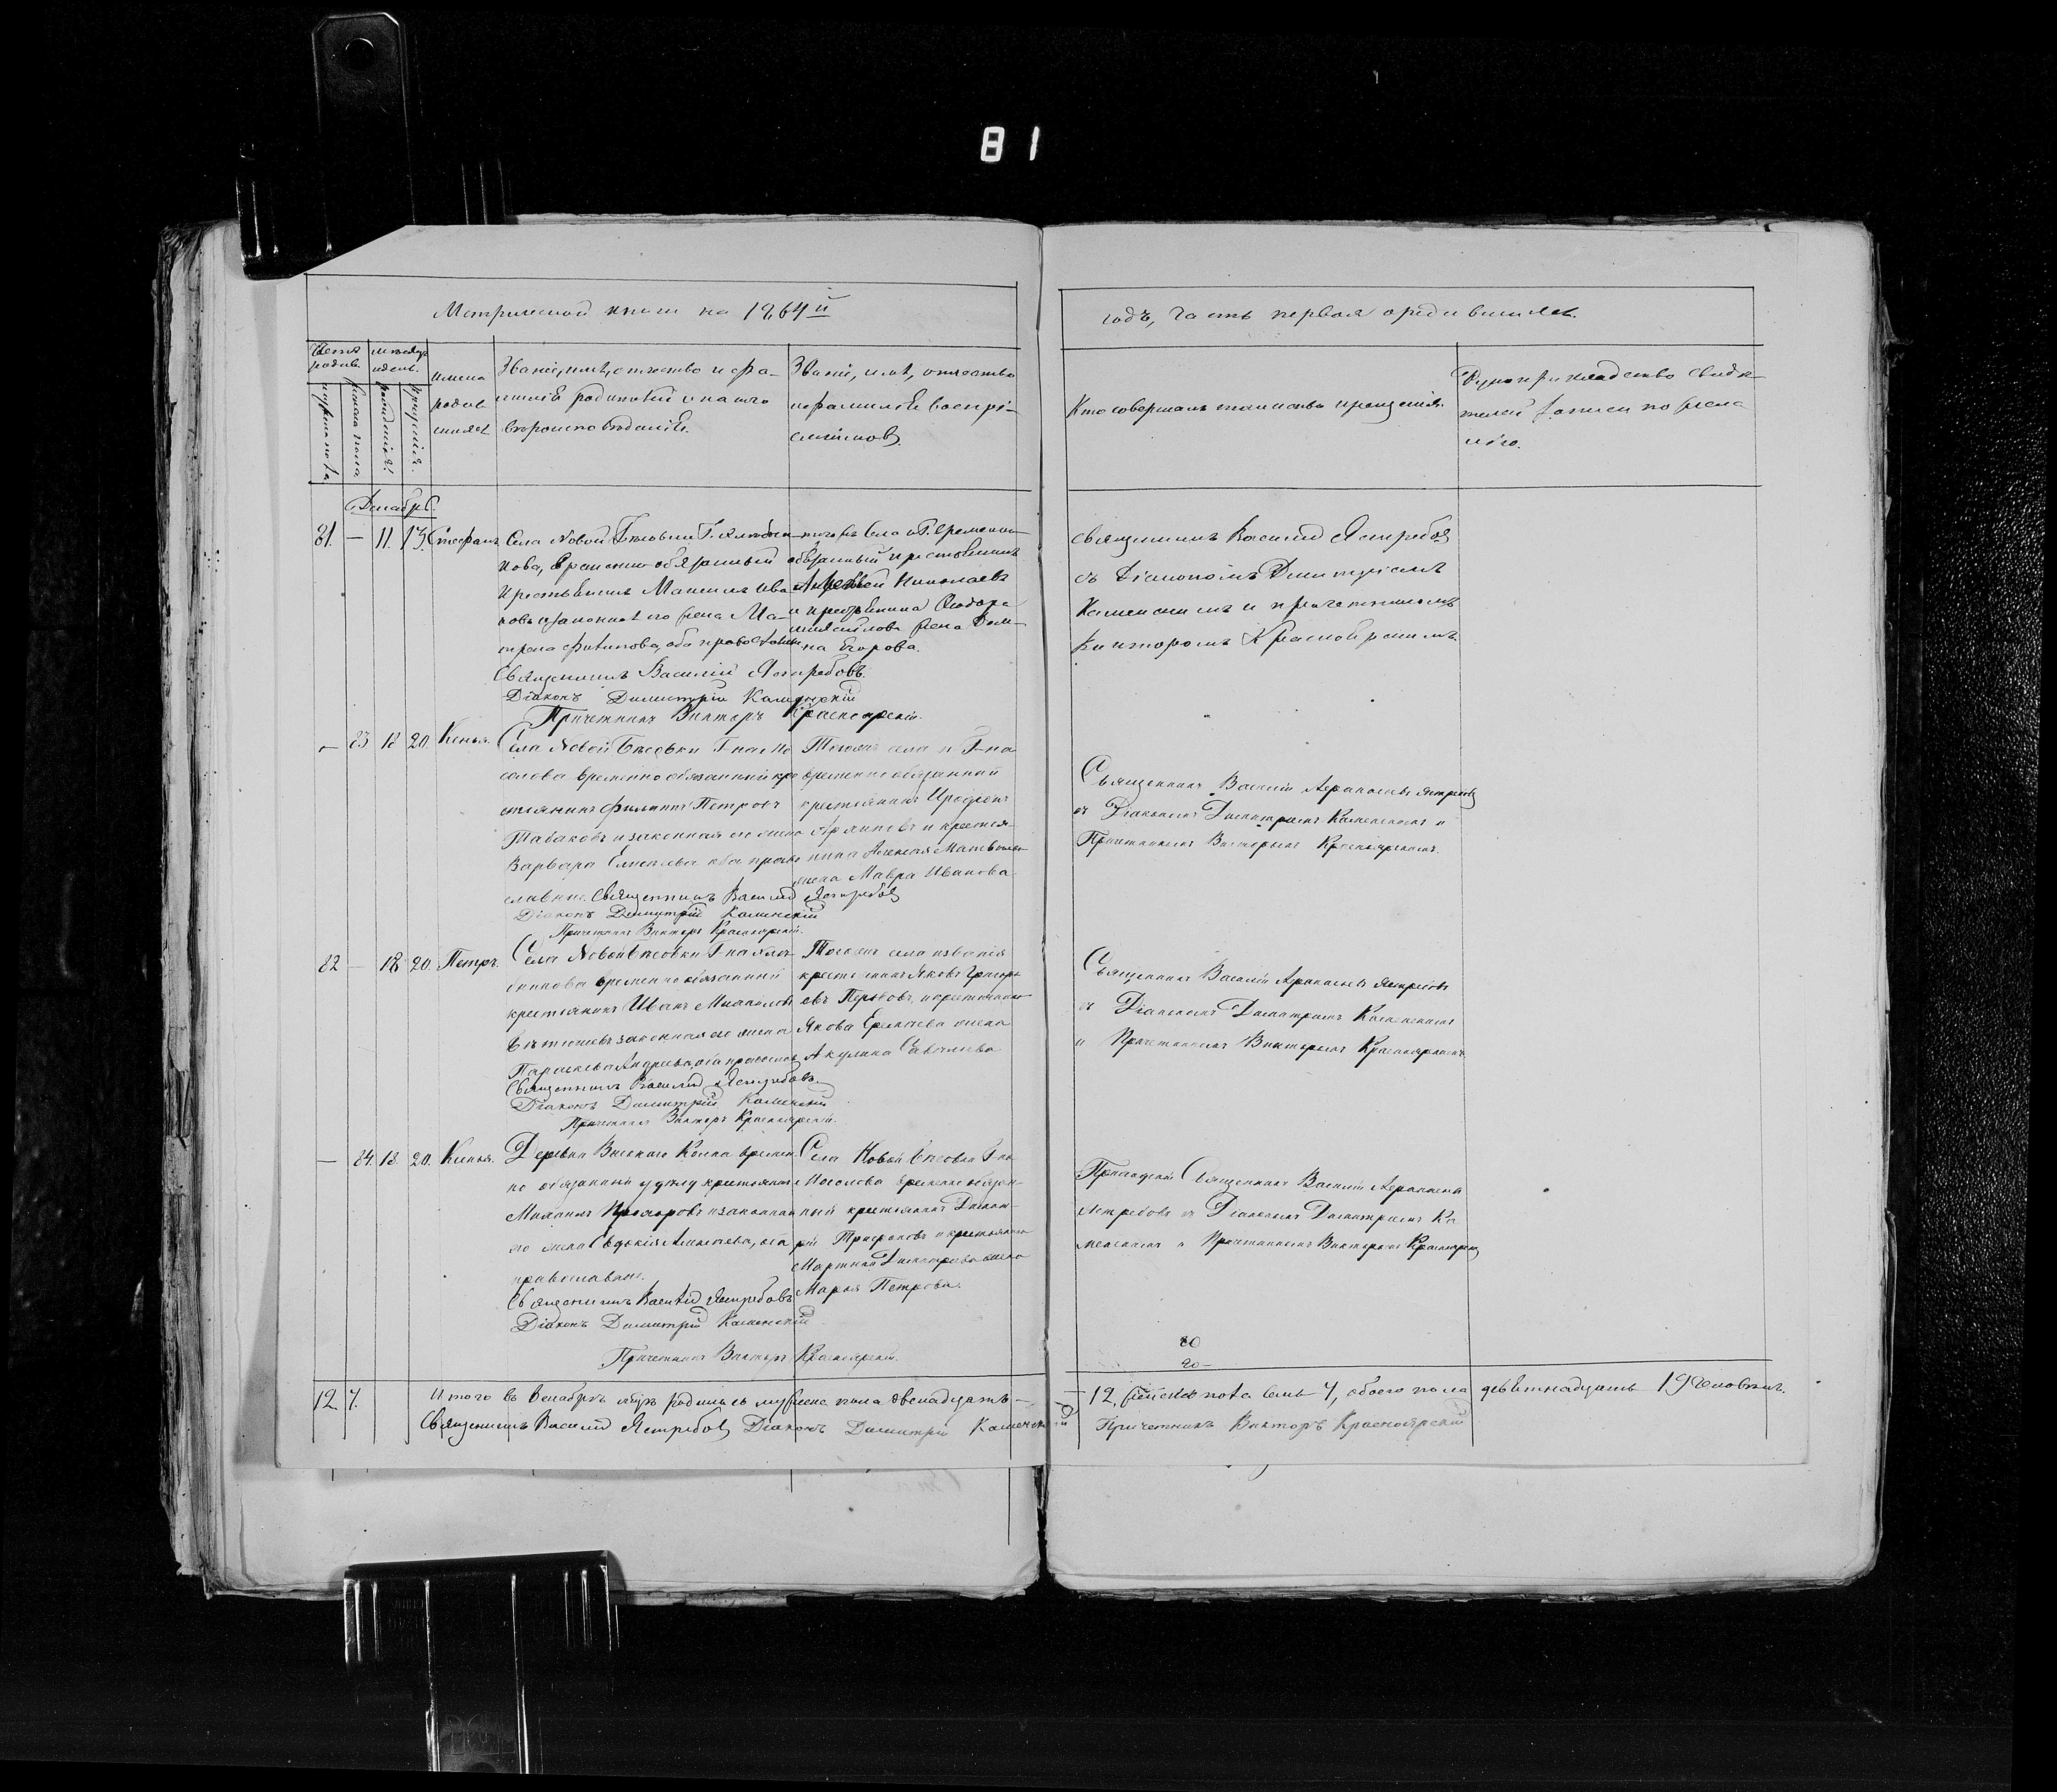 81
Метрической книги на 1864й
годъ, часть первая о родившихся.
Счетъ родив.
мужеска пола
женска пола
Месяцъ и день.
рожденія.
крещенія.
Имена родив шихся
Званіе, имя, отчество и фа-
милія родителей и какого
вероисповеданія.
Званіе, имя, отчество
и фамилія воспрі-
емниковъ.
Кто совершалъ таинство крещенія.
Рукоприкладство свиде-
телей записи по жела
нію.
Декабрь.
81. — 11. 13. Стефанъ
Села Новой
нова, временно-обязанный
крестьянинъ Максимъ Ива
новъ и законная его жена Ма-
трена Филипова, оба православн
Священникъ Василій Ястребовъ.
Діаконъ Димитрій Каменскій
Причетникъ Викторъ Красноярскій.
того же села и Г.
обязанный крестьянинъ
Николаевъ
и крестьянина Феодора
жена Дом-
на Егорова.
Священникъ Василій Ястребовъ
съ Діакономъ Димитріемъ
Каменскимъ и причетникомъ
Викторомъ Красноярскимъ
— 83 18 20. Ксенія.
Села Новой Бесовки Г-на Мо
солова временно обязанный кре
стьянинъ Филиппъ Петровъ
Табаковъ и законная его жена
Варвара Елисеева оба право
славные. Священникъ Василій Ястребовъ
Діаконъ Димитрій Каменскій
Причетникъ Викторъ Красноярскій.
Тогоже села и Г-на
временно обязанный
крестьянинъ Иродіонъ
Архиповъ и крестья-
нина Алексея Матвеева
жена Мавра Иванова
Священникъ Василій Афанасьевъ Ястребовъ
съ Діакономъ Димитріемъ Каменскимъ и
Причетникомъ Викторомъ Красноярскимъ.
82 — 18 20. Петръ.
Села Новой Бесовки Г-на Хлю-
бникова временно обязанный
крестьянинъ Иванъ Михайловъ
законная его жена
Параскева Андреева, оба православ
Священникъ Василій Ястребовъ.
Діаконъ Димитрій Каменскій
Причетникъ Викторъ Красноярскій.
Тогоже села и званія
крестьянинъ Яковъ Григорь
евъ Перовъ, и крестьянина
Якова Ермачева жена
Акулина Савельева
Священникъ Василій Афанасьевъ Ястребовъ
съ Діакономъ Димитріемъ Каменскимъ
и Причетникомъ Викторомъ Красноярскимъ
— 84. 18. 20. Ксенія.
Деревни Высокаго Колка времен
но обязанный удылу крестьянинъ
Михаилъ Прохоровъ и законная
его жена Евдокія Алексеева, оба
православные.
Священникъ Василій Ястребовъ
Діаконъ Димитрій Каменскій
Причетникъ Викторъ Красноярскій.
Села Новой Бесовки Г-на
Мосолова временно обязан-
ный крестьянинъ Димит-
рій Трифоновъ и крестьянина
Мартина Димитріева жена
Марья Петрова.
Приходскій Священникъ Василій Афанасьевъ
Ястребовъ съ Діакономъ Димитріемъ Ка
менскимъ и Причетникомъ Викторомъ Красноярск
20
20
12 7. Итого въ Декабре месяце родилось мужеска пола двенадцать —
12, женска пола семь 7, обоего пола девятнадцать 19 человекъ.
Священникъ Василій Ястребовъ Діаконъ Димитрій Каменскій
Причетникъ Викторъ Красноярскій